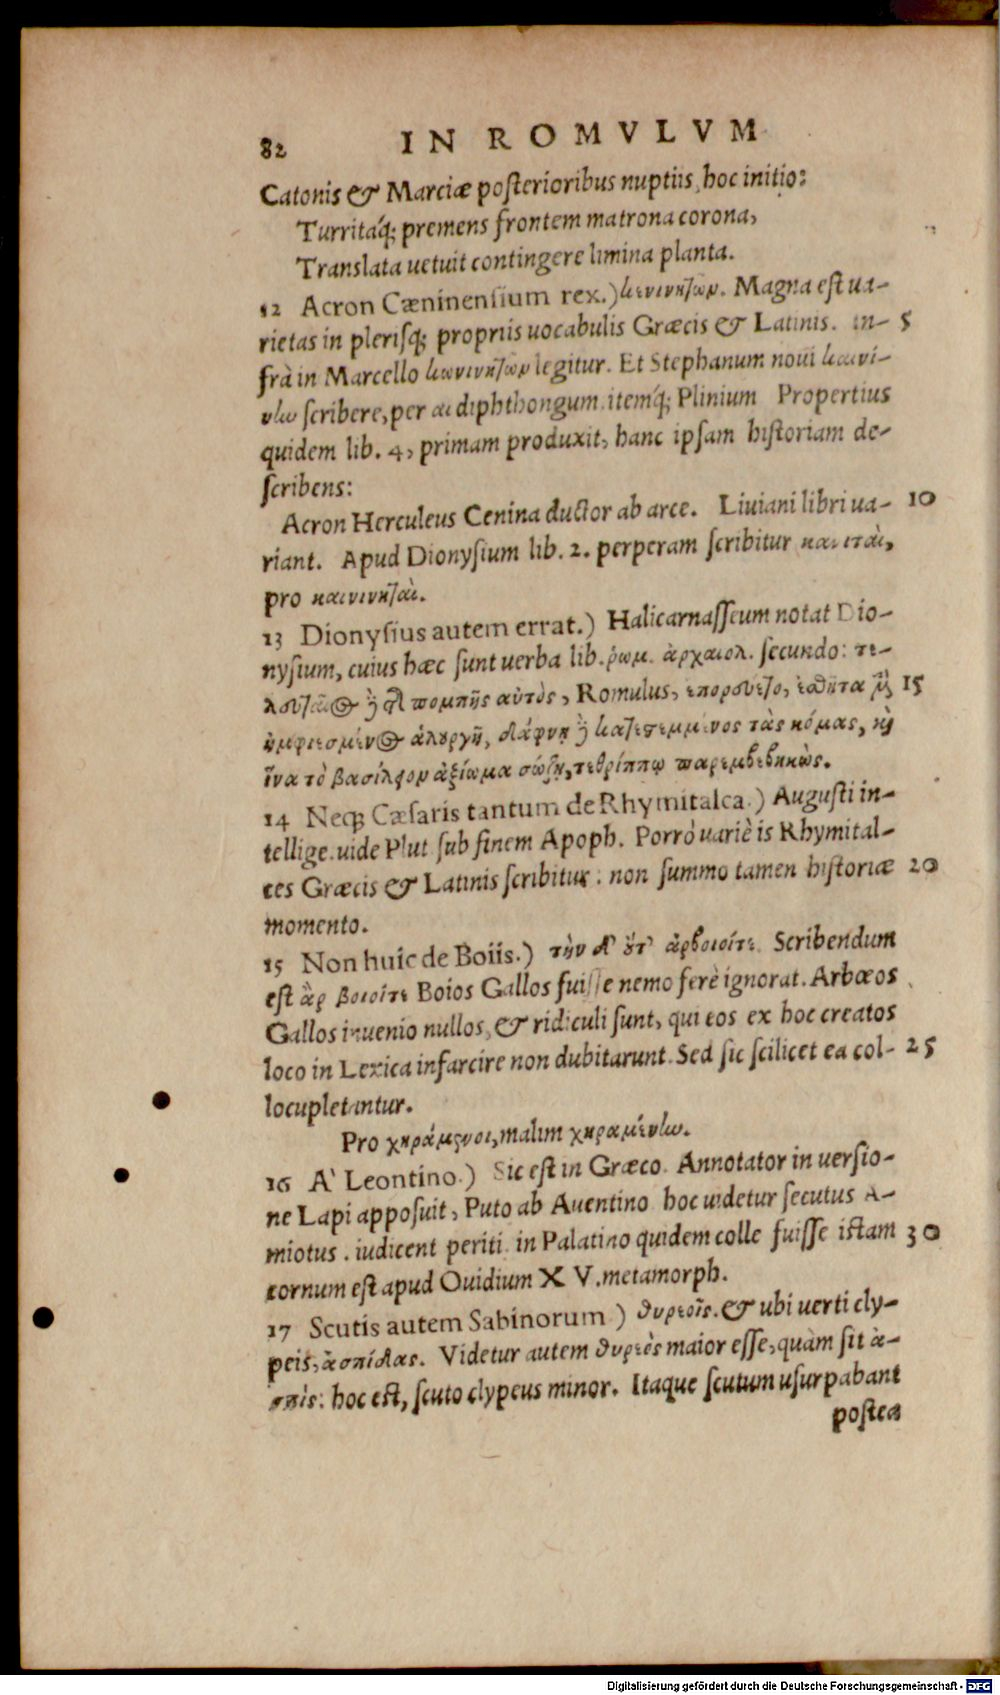 82 IN ROMVLVM
Catonis & Marciæ posterioribus nuptiis, hoc initio:
Turritáq; premens frontem matrona corona,
Translata uetuit contingere limina planta.
12 Acron Cæninensium rex.) Magna est ua-
rietas in plerisq; propriis uocabulis Græcis & Latinis. in- 5
frà in Marcello legitur. Et Stephanum noui
scribere, per αι diphthongum. itemq́; Plinium Propertius
quidem lib. 4, primam produxit, hanc ipsam historiam de-
scribens:
Acron Herculeus Cenina ductor ab arce. Liuiani libri ua- 10
riant. Apud Dionysium lib. 2. perperam scribitur
pro καινινηταὶ.
13 Dionysius autem errat.) Halicarnasseum notat Dio-
nysium, cuius hæc sunt uerba lib. ῥωμ. ἀρχαιολ. secundo: τε-
λουταῖος δὲ τῆς πομπῆς αὐτὸς, Romulus, ἐπορεύετο, ἐσθῆτα μὲν 15
ἠμφιεσμένος ἁλουργῆ, δάφνῃ δὲ κατεστεμμένος τὰς κόμας, καὶ
ἵνα τὸ βασίλειον ἀξίωμα σώζῃ, τεθρίππῳ παρεμβεβηκὼς.
14 Neq; Cæsaris tantum de Rhymitalca.) Augusti in-
tellige. uide Plut sub finem Apoph. Porrò uariè is Rhymital-
ces Græcis & Latinis scribitur: non summo tamen historiæ 20
momento.
15 Non huic de Boiis.) τὴν δ' οὔτ' ἀρβοιοίτε. Scribendum
est ἂρ βοιοίτε Boios Gallos fuisse nemo ferè ignorat. Arbœos
Gallos inuenio nullos, & ridiculi sunt, qui eos ex hoc creatos
loco in Lexica infarcire non dubitarunt. Sed sic scilicet ea col- 25
locupletantur.
Pro χηράμενοι, malim χηραμένων.
16 A' Leontino.) Sic est in Græco. Annotator in uersio-
ne Lapi apposuit, Puto ab Auentino hoc uidetur secutus A-
miotus. iudicent periti. in Palatino quidem colle fuisse istam 30
cornum est apud Ouidium XV. metamorph.
17 Scutis autem Sabinorum) θυρεοῖς. & ubi uerti cly-
peis, ἀσπίδας. Videtur autem θυρεὸς maior esse, quàm sit ἀ-
σπὶς: hoc est, scuto clypeus minor. Itaque scutum usurpabant
postea
Digitalisierung gefördert durch die Deutsche Forschungsgemeinschaft - DFG